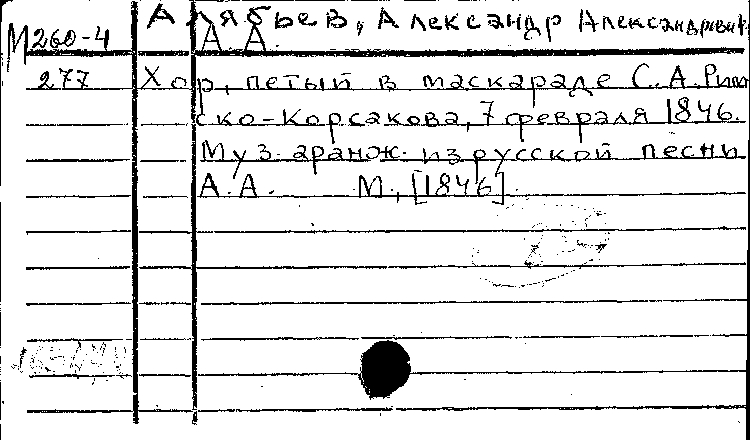 М260-4 Алябьев, Александр Александрович
А. А.
277 Хор, петый в маскараде С. А. Рим
ско-Корсакова, 7 февраля 1846.
Муз. аранж. из русской песни
А. А. М., [1846].